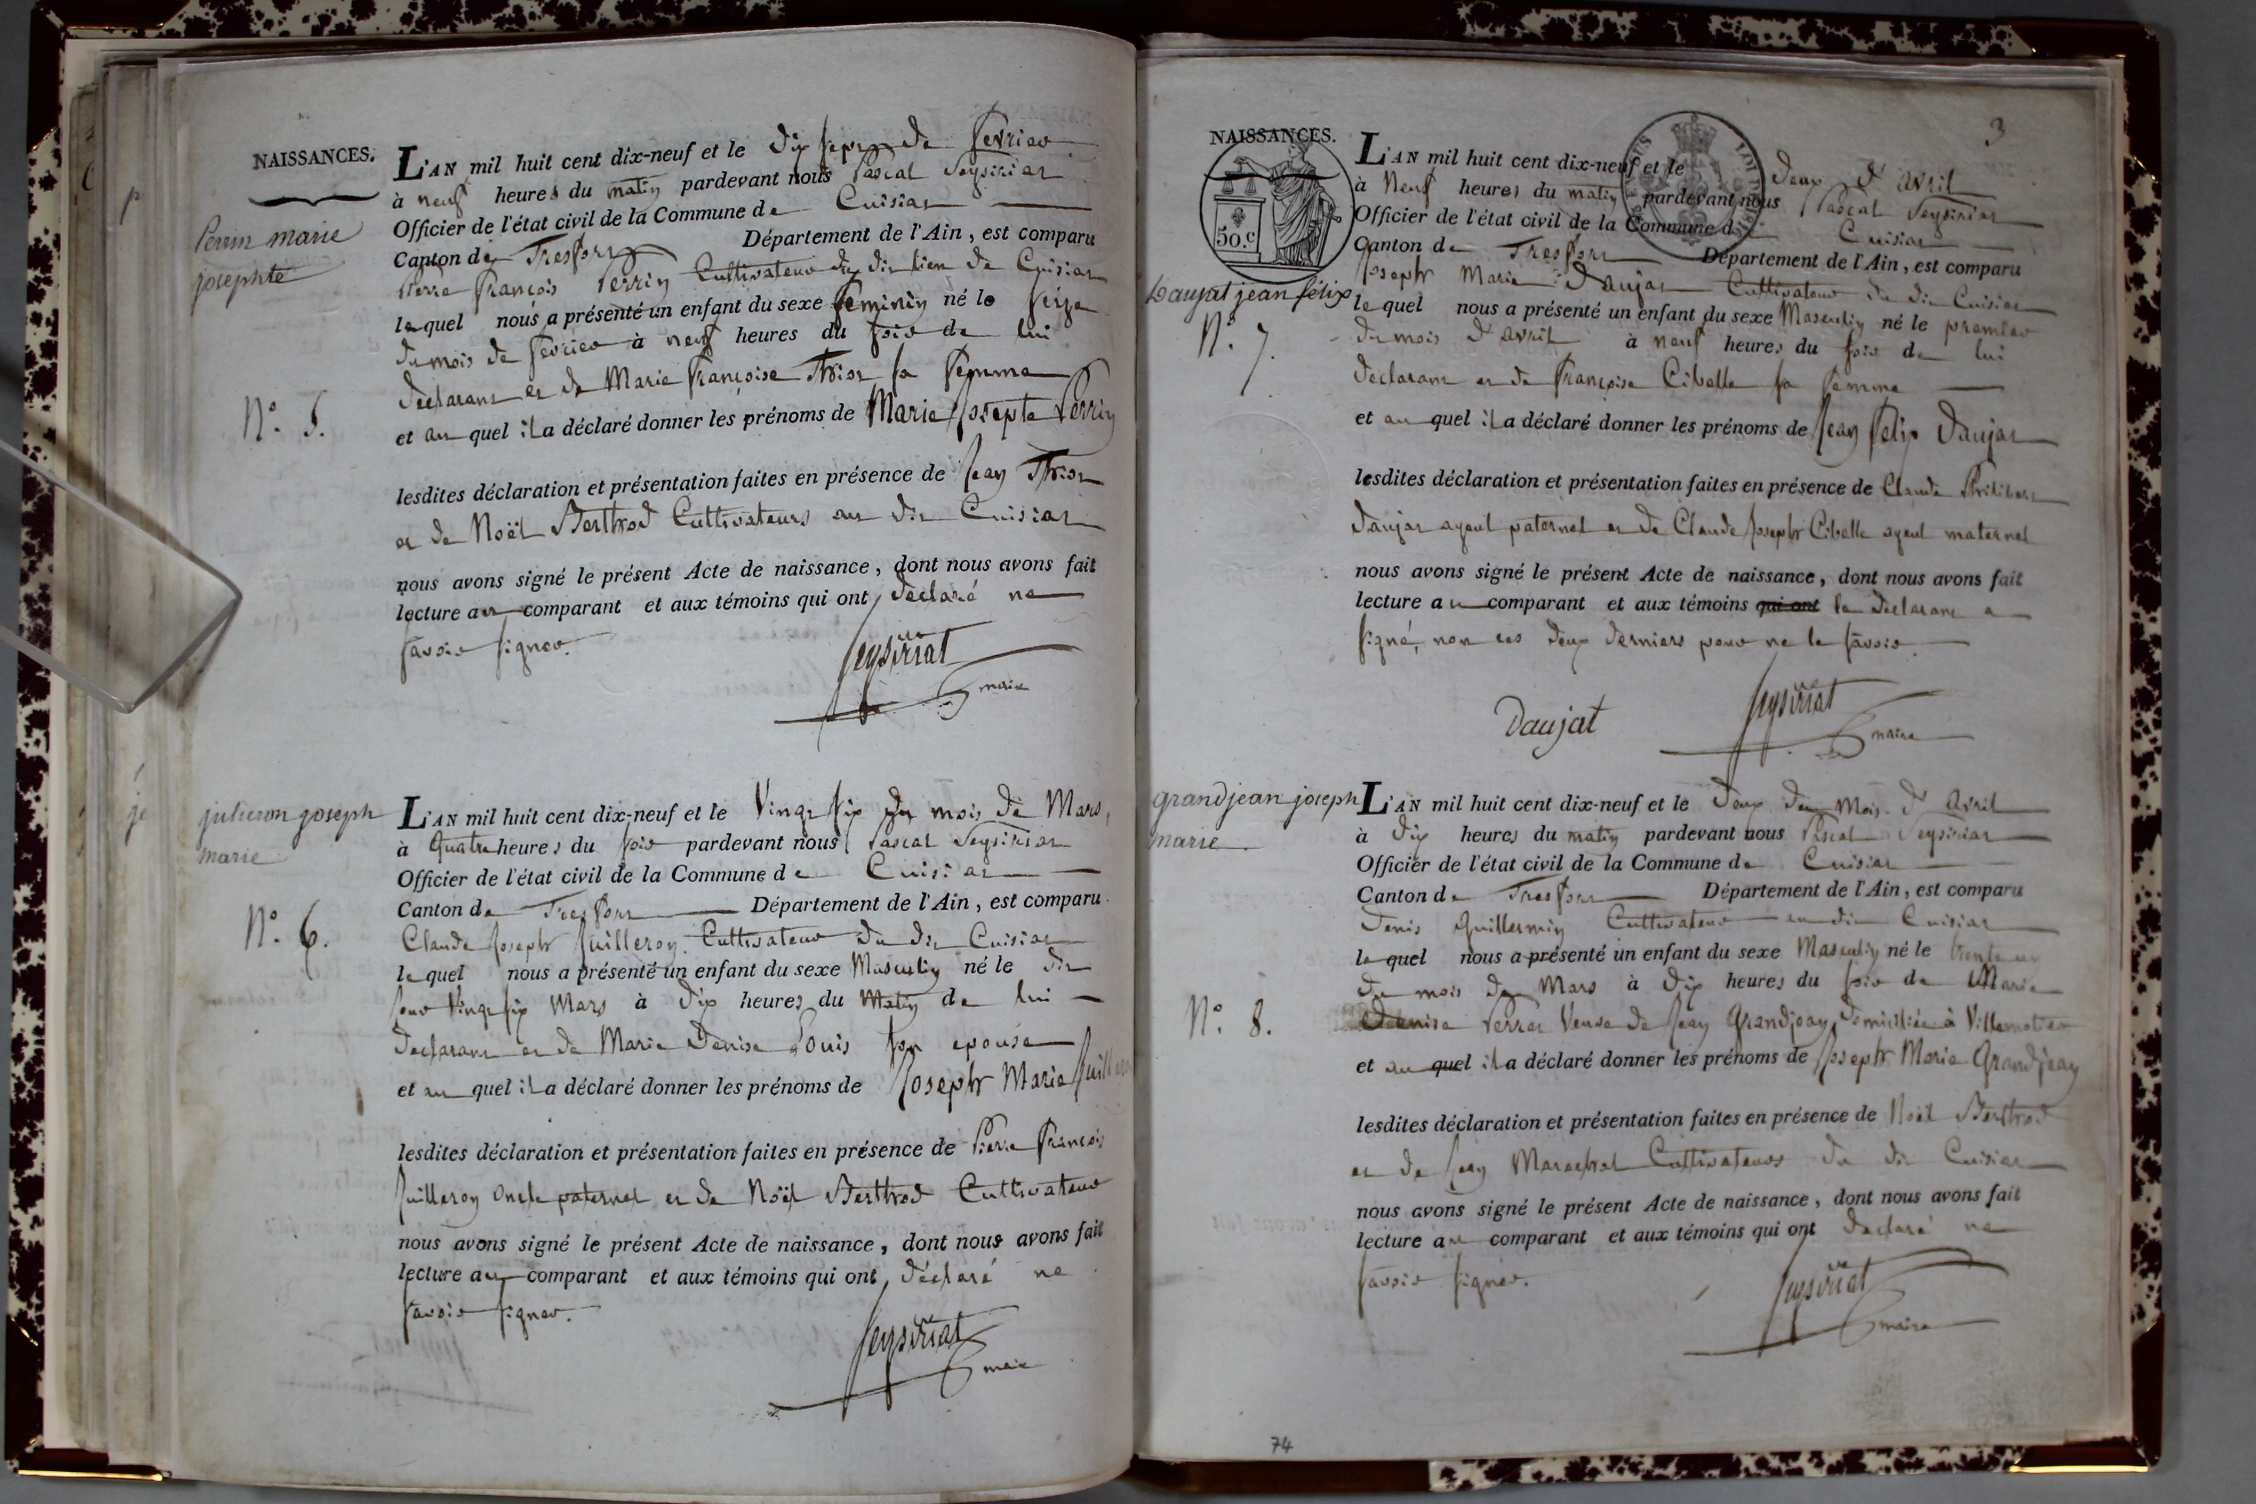 NAISSANCES.
Perrin marie
josephte
N.º 5.
L'AN mil huit cent dix-neuf et le dix sept de fevrier
à neuf heures du matin pardevant nous Pascal Seysiriat
Officier de l'état civil de la Commune de Cuisiat
Canton de Tresfort Département de l'Ain, est comparu
Pierre François Perrin Cultivateur du dit lieu de Cuisiat
lequel nous a présenté un enfant du sexe feminin né le seize
du mois de fevrier à neuf heures du soir de lui
declarant et de Marie Françoise Thiot sa femme
et au quel il a déclaré donner les prénoms de Marie Josepte Perrin
lesdites déclaration et présentation faites en présence de Jean Thiot
et de Noël Berthod Cultivateurs au dit Cuisiat
nous avons signé le présent Acte de naissance, dont nous avons fait
lecture au comparant et aux témoins qui ont déclaré ne
savoir signer.
Seysiriat
maire
juileron joseph
marie
N.º 6.
L'AN mil huit cent dix-neuf et le Vingt six du mois de Mars,
à Quatre heures du soir pardevant nous Pascal Seysiriat
Officier de l'état civil de la Commune de Cuisiat
Canton de Tresfort Département de l'Ain, est comparu
Claude Joseph Juilleron Cultivateur du dit Cuisiat
lequel nous a présenté un enfant du sexe Masculin né le dit
jour Vingt six Mars à dix heures du Matin de lui
declarant et de Marie Denise Louis son epouse
et au quel il a déclaré donner les prénoms de Joseph Marie
lesdites déclaration et présentation faites en présence de Pierre François
Juilleron Oncle paternel et de Noël Berthod Cultivateur
nous avons signé le présent Acte de naissance, dont nous avons fait
lecture au comparant et aux témoins qui ont déclaré ne
savoir signer.
Seysiriat
maire
3
NAISSANCES.
50.c
Daujat jean félix
N.º 7.
L'AN mil huit cent dix-neuf et le deux d'avril
à Neuf heures du matin pardevant nous Pascal Seysiriat
Officier de l'état civil de la Commune de Cuisiat
Canton de Tresfort Département de l'Ain, est comparu
Joseph Marie Daujat Cultivateur du dit Cuisiat
lequel nous a présenté un enfant du sexe Masculin né le premier
du mois d'avril à neuf heures du soir de lui
declarant et de Françoise Cibelle sa femme
et au quel il a déclaré donner les prénoms de Jean Felix Daujat
lesdites déclaration et présentation faites en présence de Claude Philibert
Daujat ayeul paternel et de Claude Joseph Cibelle ayeul maternel
nous avons signé le présent Acte de naissance, dont nous avons fait
lecture au comparant et aux témoins qui ont le declarant a
signé, non les deux derniers pour ne le savoir.
Daujat
Seysiriat
maire
grandjean joseph
marie
N.º 8.
L'AN mil huit cent dix-neuf et le deux du Mois d'Avril
à dix heures du matin pardevant nous Pascal Seysiriat
Officier de l'état civil de la Commune de Cuisiat
Canton de Tresfort Département de l'Ain, est comparu
Denis Guillermin Cultivateur au dit Cuisiat
lequel nous a présenté un enfant du sexe Masculin né le trente un
du mois de Mars à dix heures du soir de Marie
Denise Perrat Veuve de Jean Grandjean, domiciliée à Villemotier
et au quel il a déclaré donner les prénoms de Joseph Marie Grandjean
lesdites déclaration et présentation faites en présence de Noël Berthod
et de Jean Marechal Cultivateurs du dit Cuisiat
nous avons signé le présent Acte de naissance, dont nous avons fait
lecture au comparant et aux témoins qui ont declaré ne
savoir signer.
Seysiriat
maire
74